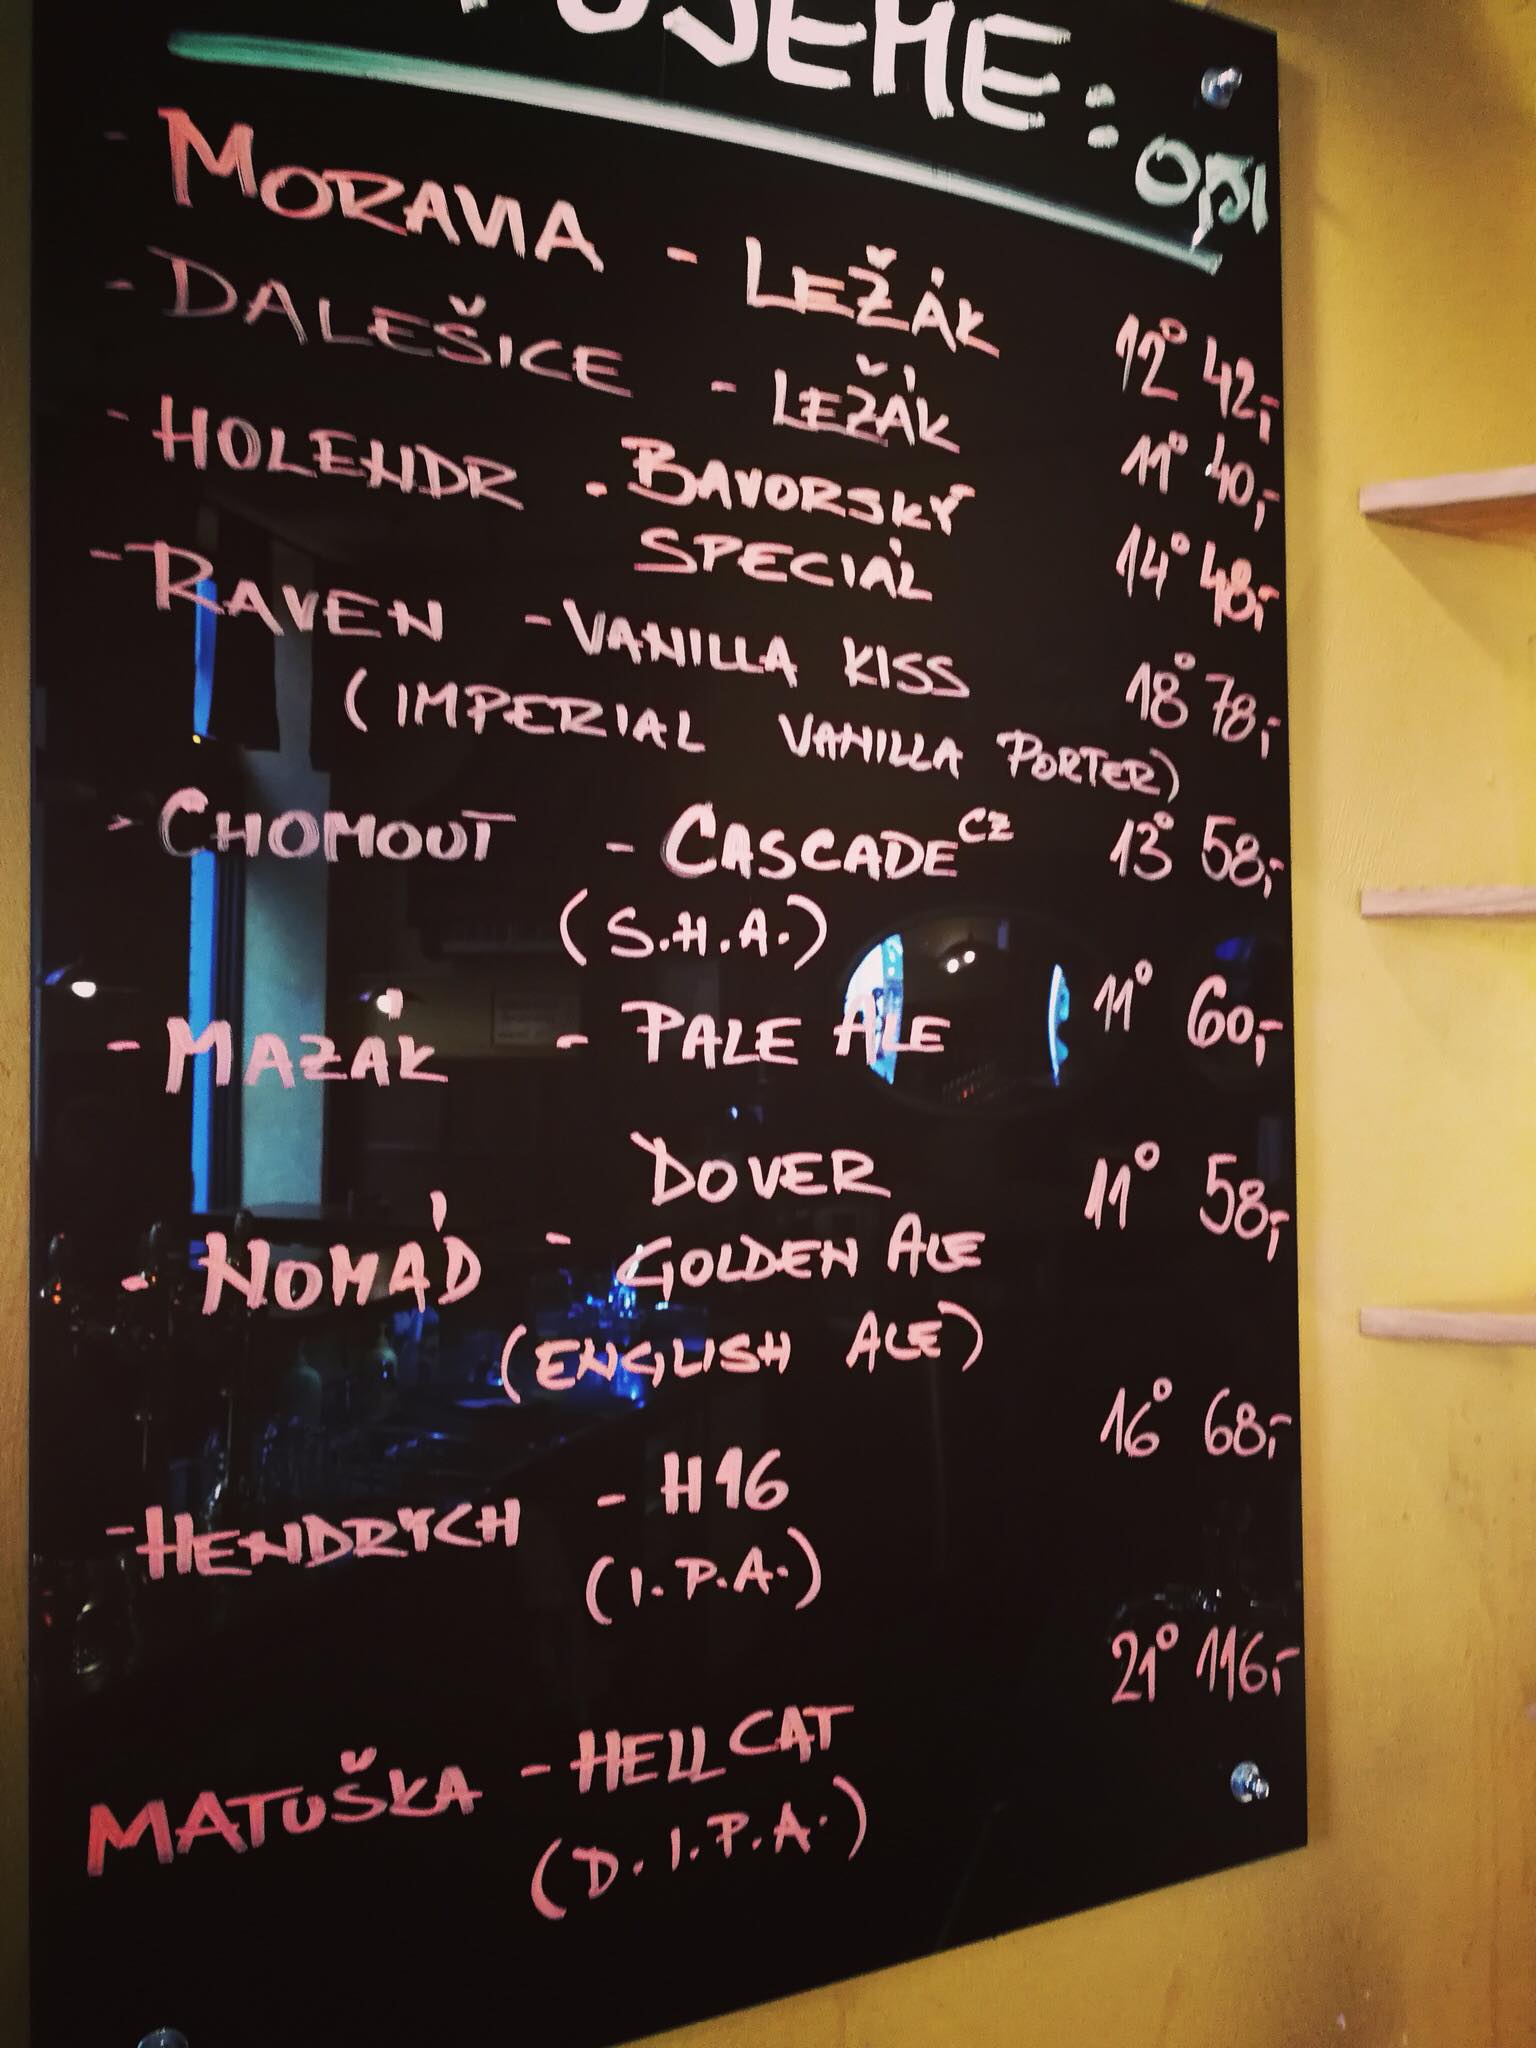 UJEME: 0,5l
- MORAVIA - LEŽÁK 12° 42,-
- DALEŠICE - LEŽÁK 11° 40,-
- HOLENDR - BAVORSKÝ 14° 48,-
SPECIÁL
- RAVEN - VANILLA KISS 18° 78,-
(IMPERIAL VANILLA PORTER)
- CHOMOUT - CASCADE CZ 13° 58,-
(S.H.A.)
- MAZÁK - PALE ALE 11° 60,-
DOVER 11° 58,-
- NOMÁD - GOLDEN ALE
(ENGLISH ALE)
- HENDRYCH - H16 16° 68,-
(I.P.A.)
MATUŠKA - HELL CAT 21° 116,-
(D.I.P.A.)